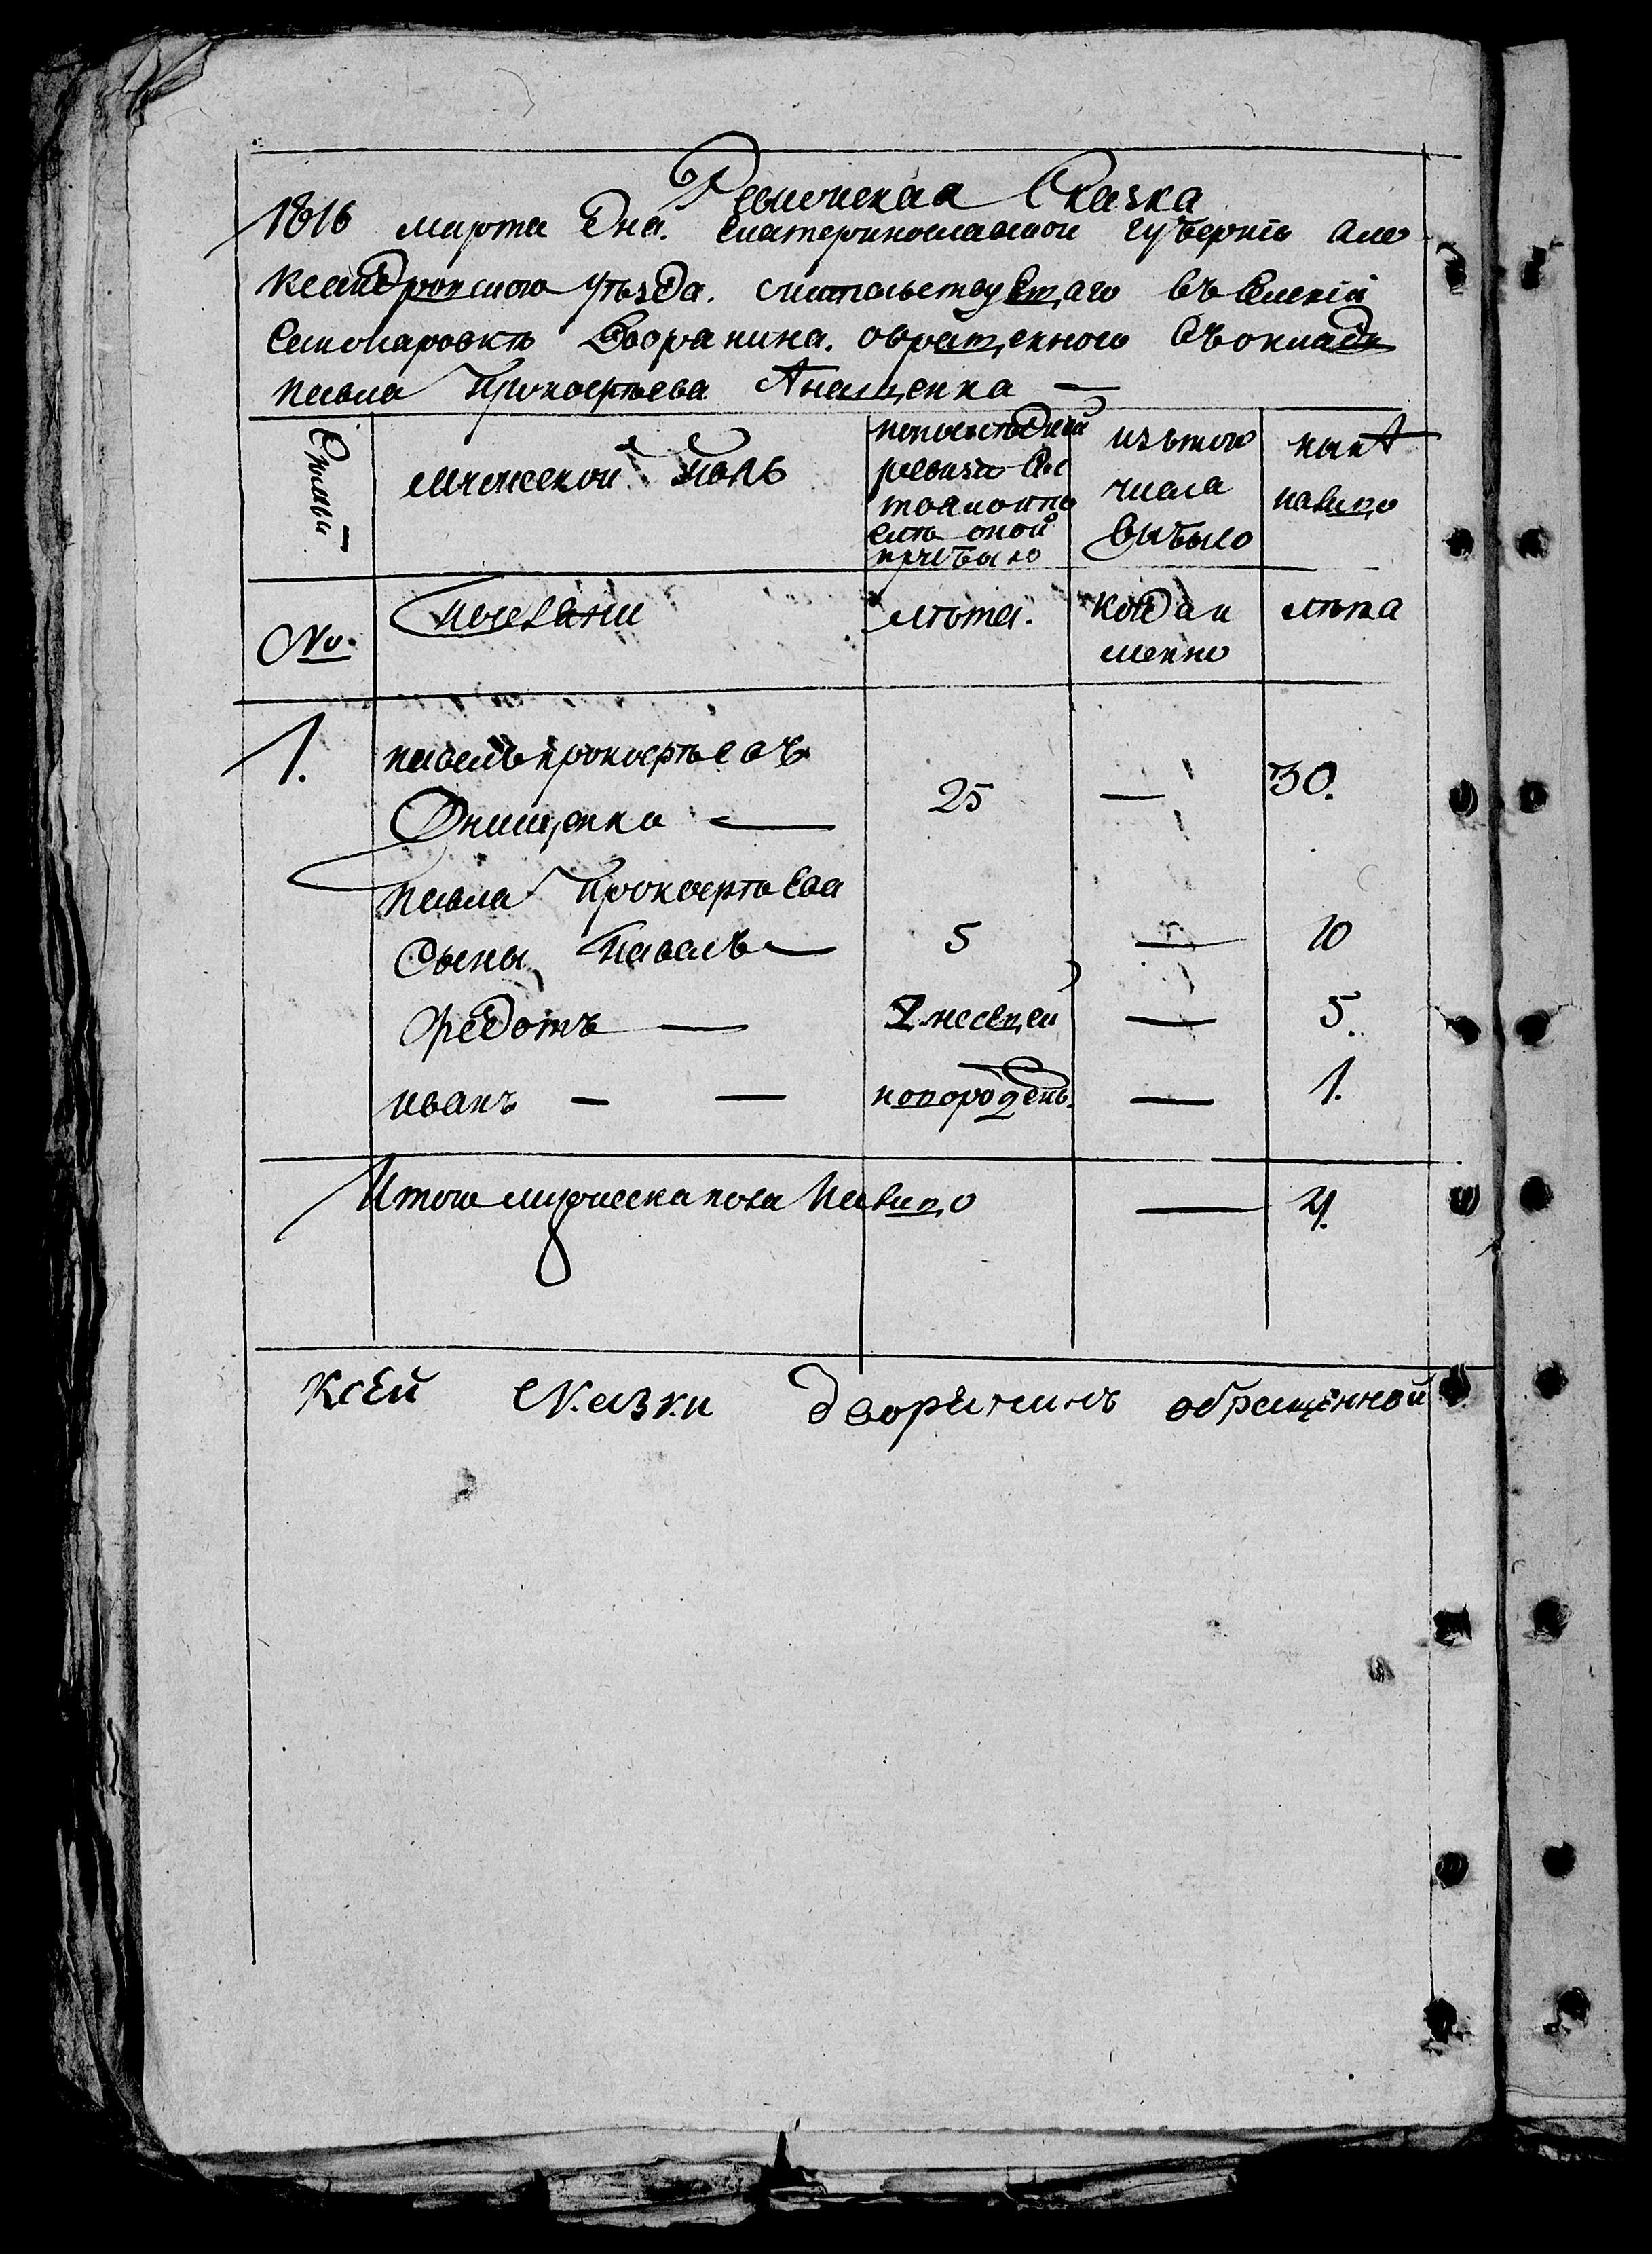 Ревижская Сказка
1816 марта Дня. Екатеринославской губернiи Але
ксандровского уѣзда. жительствующаго въ Селенiи
Дворянина. обращенного въ окладъ
Павла Прокофьева Анищенка —
Семьи
мужеской полъ
попослѣдней
ревизiи Сос
тояло и по
слѣ оной
прибыло
изътого
числа
выбыло
нынѣ
налицо
№.
лѣта.
Когда и
менно
лѣта
1. павелъ прокофьевъ
Онищенко — 25 — 30.
Павла Прокофьева
Сыны Павелъ — 5 — 10
Федотъ — месецей — 5.
иванъ — — новорожденъ. — 1.
Итого мужеска пола Налицо — 4.
Ксей сказки дворянинъ обращенной